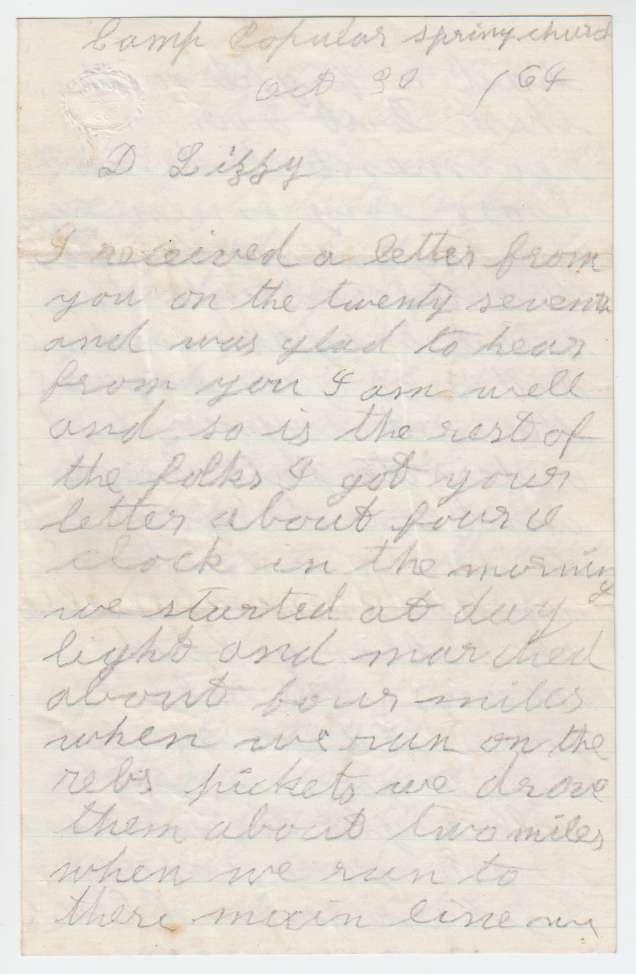 Camp Popular spring church
Oct 30 / 64
D Lizzy
I received a letter from
you on the twenty seventh
and was glad to hear
from you I am well
and so is the rest of
the folks I got your
letter about four o
clock in the morning
we started at day
light and marched
about four miles
when we run on the
rebs pickets we drove
them about two miles
when we run to
there main line we